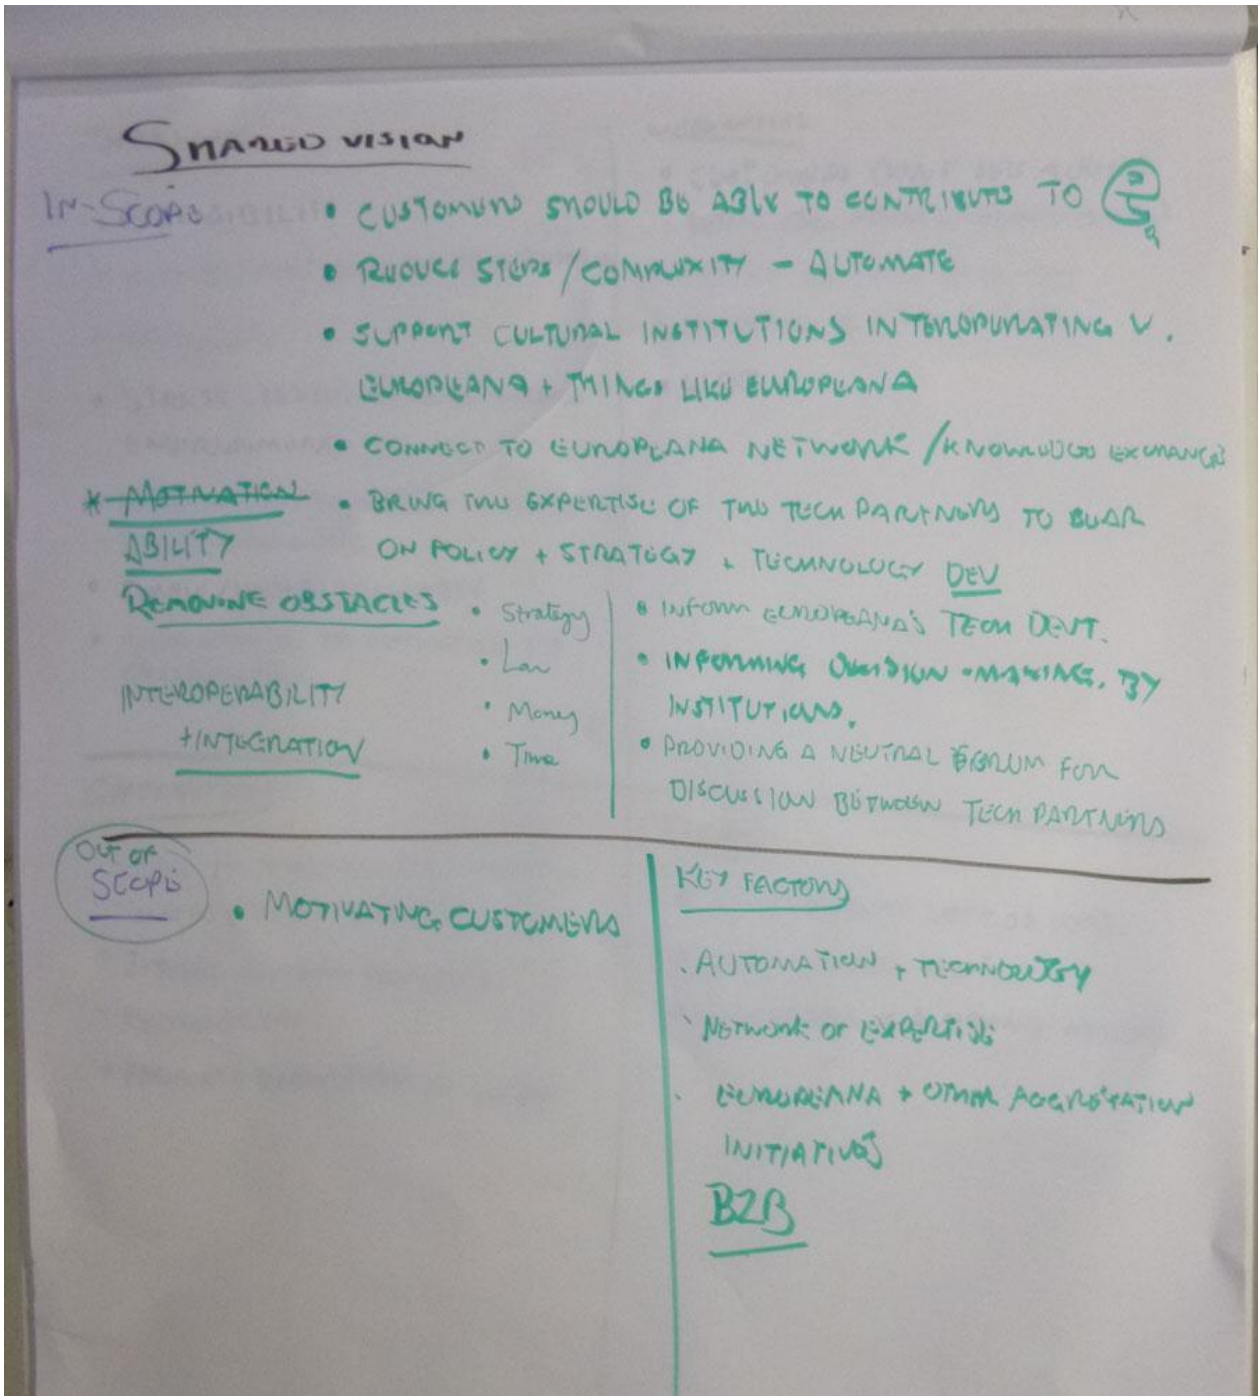 SHARED VISION
IN-SCOPE
• CUSTOMERS SHOULD BE ABLE TO CONTRIBUTE TO
• REDUCE STEPS / COMPLEXITY - AUTOMATE
• SUPPORT CULTURAL INSTITUTIONS INTEROPERATING W.
EUROPEANA + THINGS LIKE EUROPEANA
• CONNECT TO EUROPEANA NETWORK / KNOWLEDGE EXCHANGE
* MOTIVATION
ABILITY
• BRING THE EXPERTISE OF THE TECH PARTNERS TO BEAR
ON POLICY + STRATEGY + TECHNOLOGY DEV
REMOVING OBSTACLES
• Strategy
• Law
• Money
• Time
INTEROPERABILITY
+ INTEGRATION
• INFORM EUROPEANA'S TECH DEVT.
• INFORMING DECISION-MAKING BY
INSTITUTIONS.
• PROVIDING A NEUTRAL FORUM FOR
DISCUSSION BETWEEN TECH PARTNERS
OUT OF
SCOPE
• MOTIVATING CUSTOMERS
KEY FACTORS
. AUTOMATION + TECHNOLOGY
. NETWORK OF EXPERTISE
. EUROPEANA + OTHER AGGREGATION
INITIATIVES
B2B